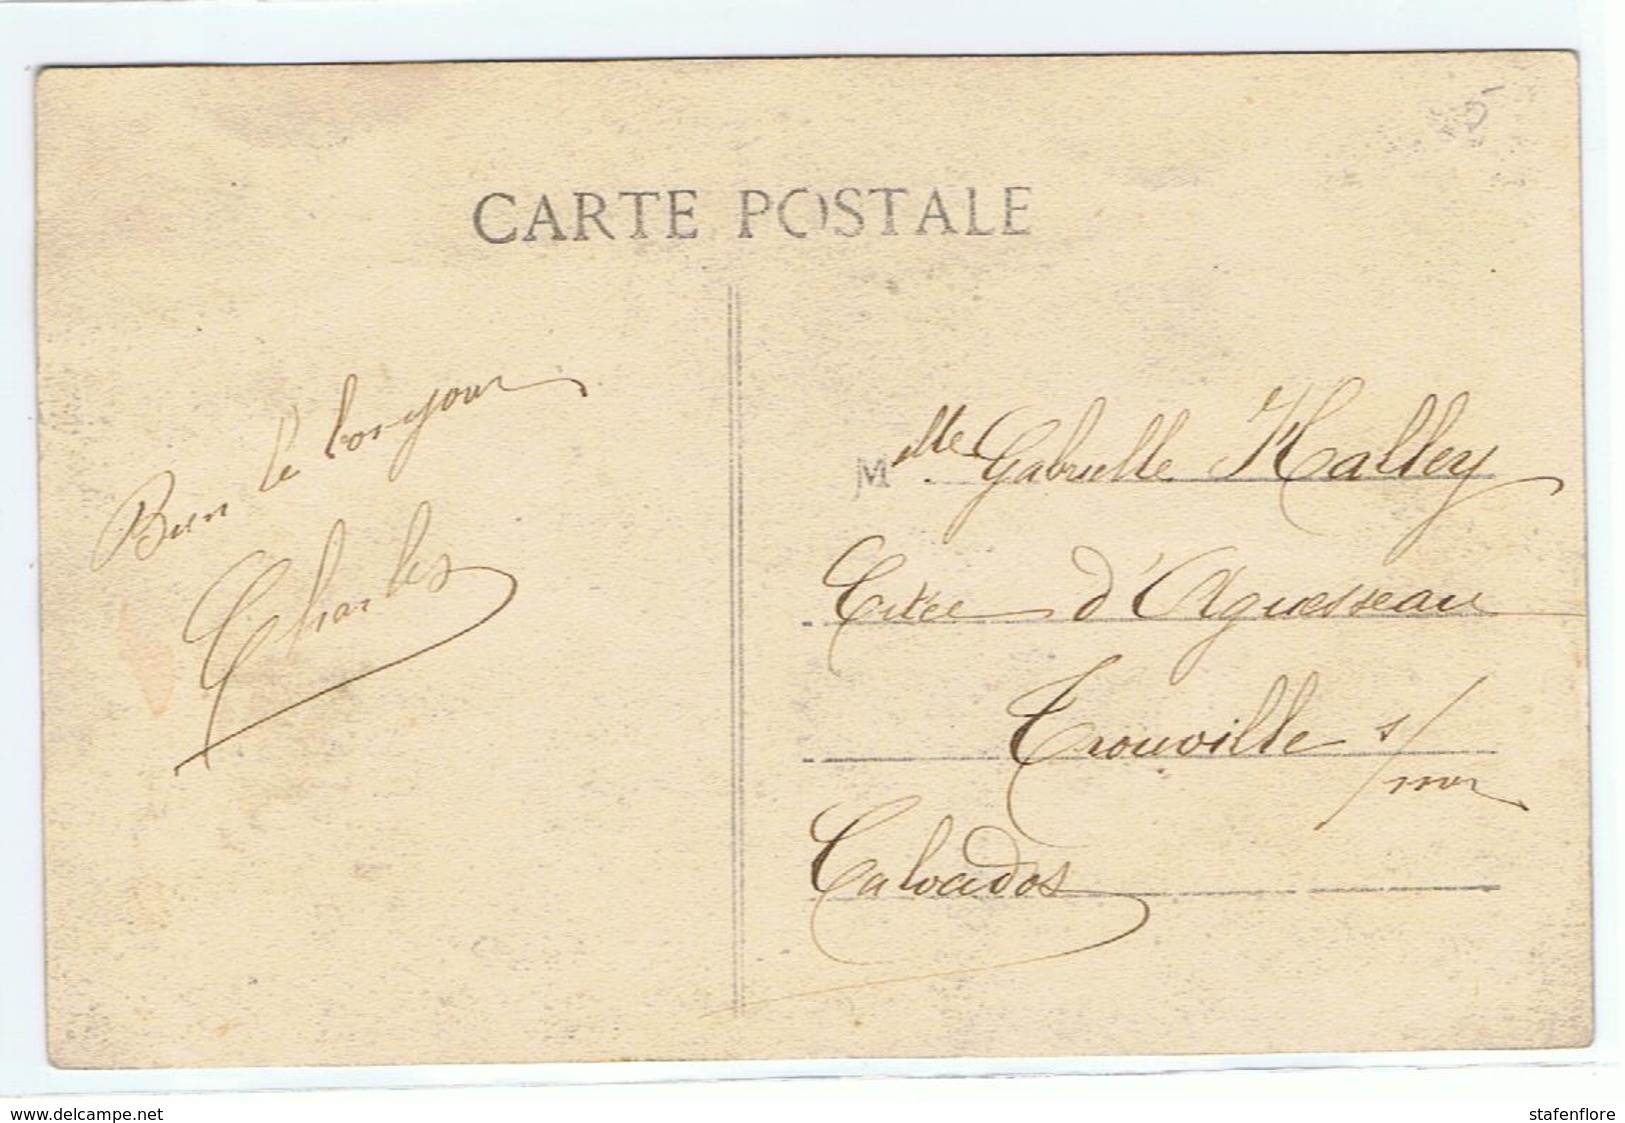 CARTE POSTALE
Bien le bonjour
Charles
Melle Gabrielle Halley
d'Aguesseau
Trouville s/
mer
Calvados
www.delcampe.net
stafenflore